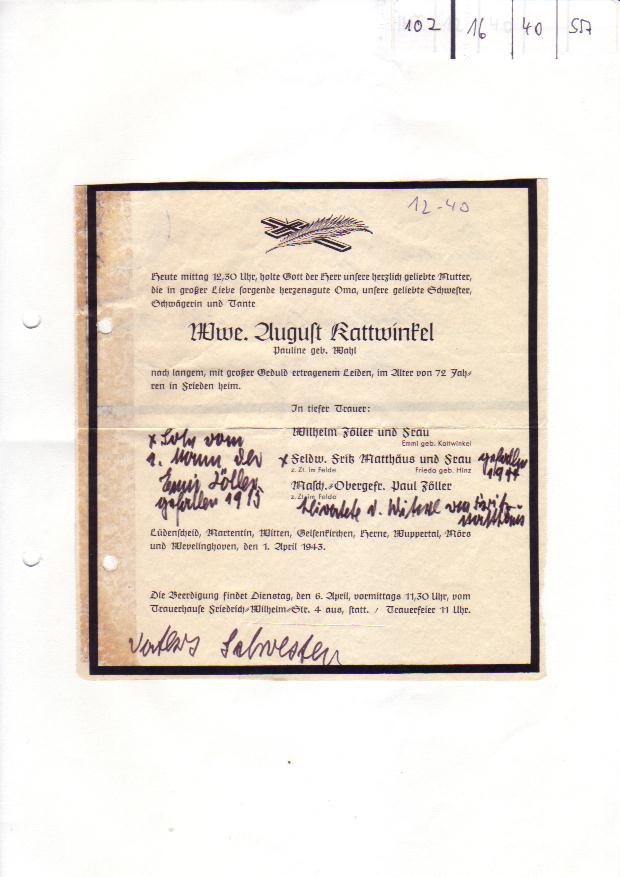 102 16 40 517
12-40
Heute mittag 12,30 Uhr, holte Gott der Herr unsere herzlich geliebte Mutter,
die in großer Liebe sorgende herzensgute Oma, unsere geliebte Schwester,
Schwägerin und Tante
Wwe. August Kattwinkel
Pauline geb. Wahl
nach langem, mit großer Geduld ertragenem Leiden, im Alter von 72 Jah-
ren in Frieden heim.
In tiefer Trauer:
Wilhelm Föller und Frau
Emmi geb. Kattwinkel
x Feldw. Fritz Matthäus und Frau gefallen 1944
z. Zt. im Felde Frieda geb. Hinz
Masch.-Obergefr. Paul Föller
z. Zt. im Felde
x Sohn vom
1. Mann der
Emmi Zöller
gefallen 1915
heiratete d. Witwe von Fritz
Matthäus
Lüdenscheid, Martentin, Witten, Gelsenkirchen, Herne, Wuppertal, Mörs
und Wevelinghoven, den 1. April 1943.
Die Beerdigung findet Dienstag, den 6. April, vormittags 11,30 Uhr, vom
Trauerhause Friedrich-Wilhelm-Str. 4 aus, statt. / Trauerfeier 11 Uhr.
Vaters Schwester